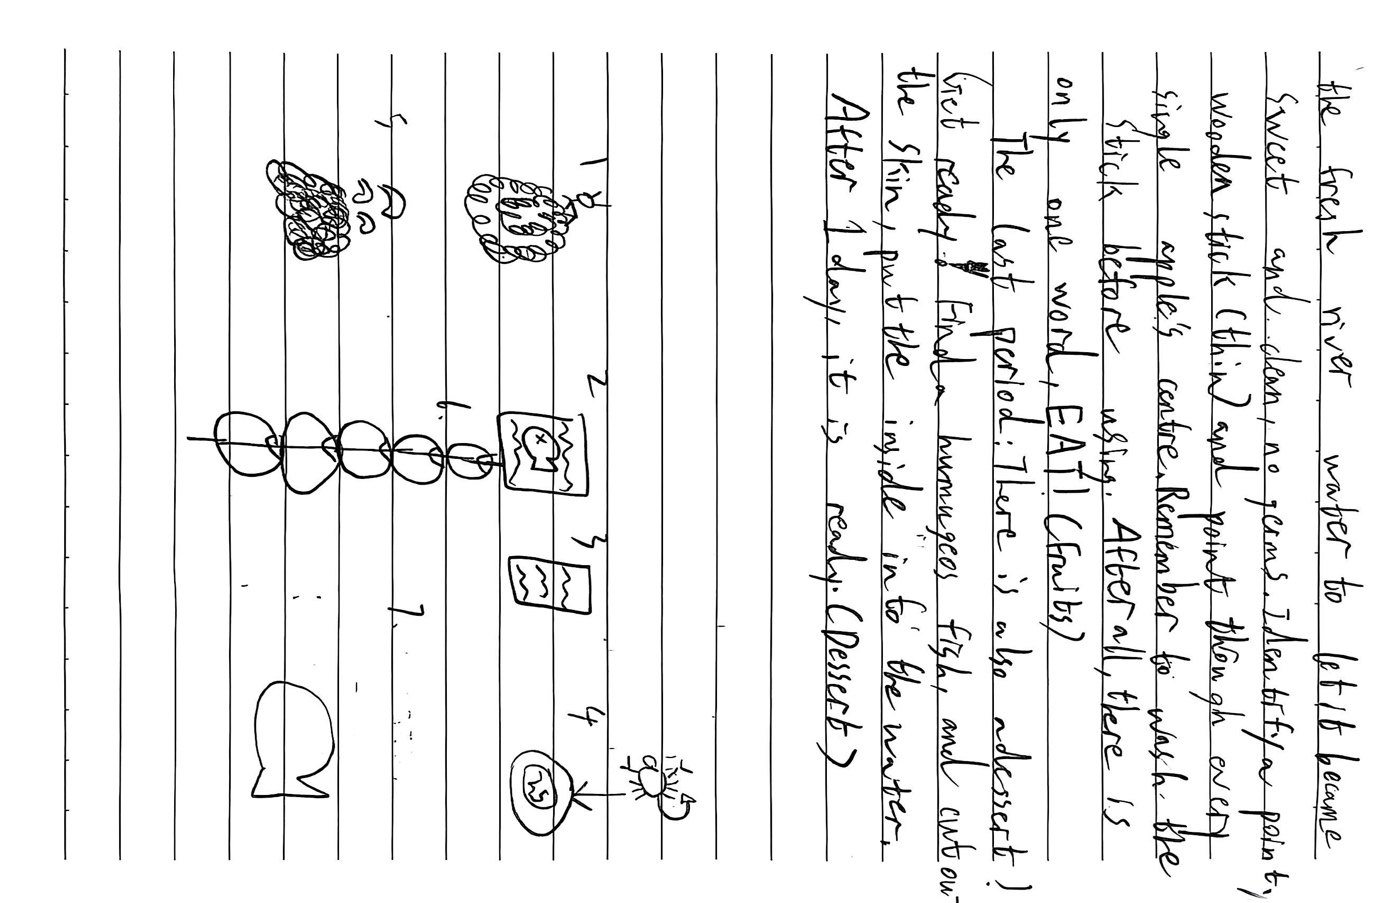 the fresh river water to let it became
sweet and clean, no germs. Identify a pointy
wooden stick (thin) and point though every
single apple's centre. Remember to wash the
stick before using. After all, there is
only one word, EAT! (fruits)
The last period: There is also adessert!
Get ready. Find a humugeos fish, and cut out
the skin, put the inside into the water.
After 1 day, it is ready. (Dessert)
1 2 3 4
5 6. 7